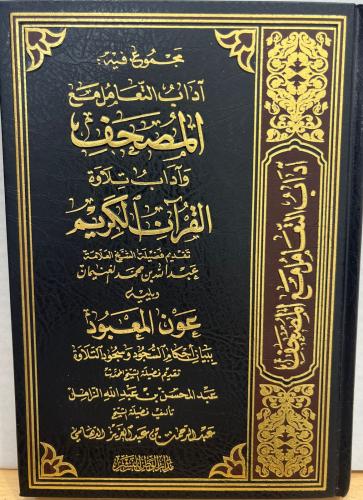 مجموع فيه:
آداب التعامل مع
المصحف
وآداب تلاوة
القرآن الكريم
تقديم فضيلة الشيخ العلامة
عبد الله بن محمد الغنيمان
ويليه
عون المعبود
ببيان أحكام السجود وسجود التلاوة
تقديم فضيلة الشيخ المحدث
عبد المحسن بن عبد الله الزامل
تأليف فضيلة الشيخ
عبد الرحمن بن عبد العزيز
آداب التعامل مع المصحف